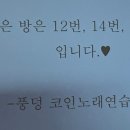 은 방은 12번, 14번,
입니다.♥
-풍덩 코인노래연습